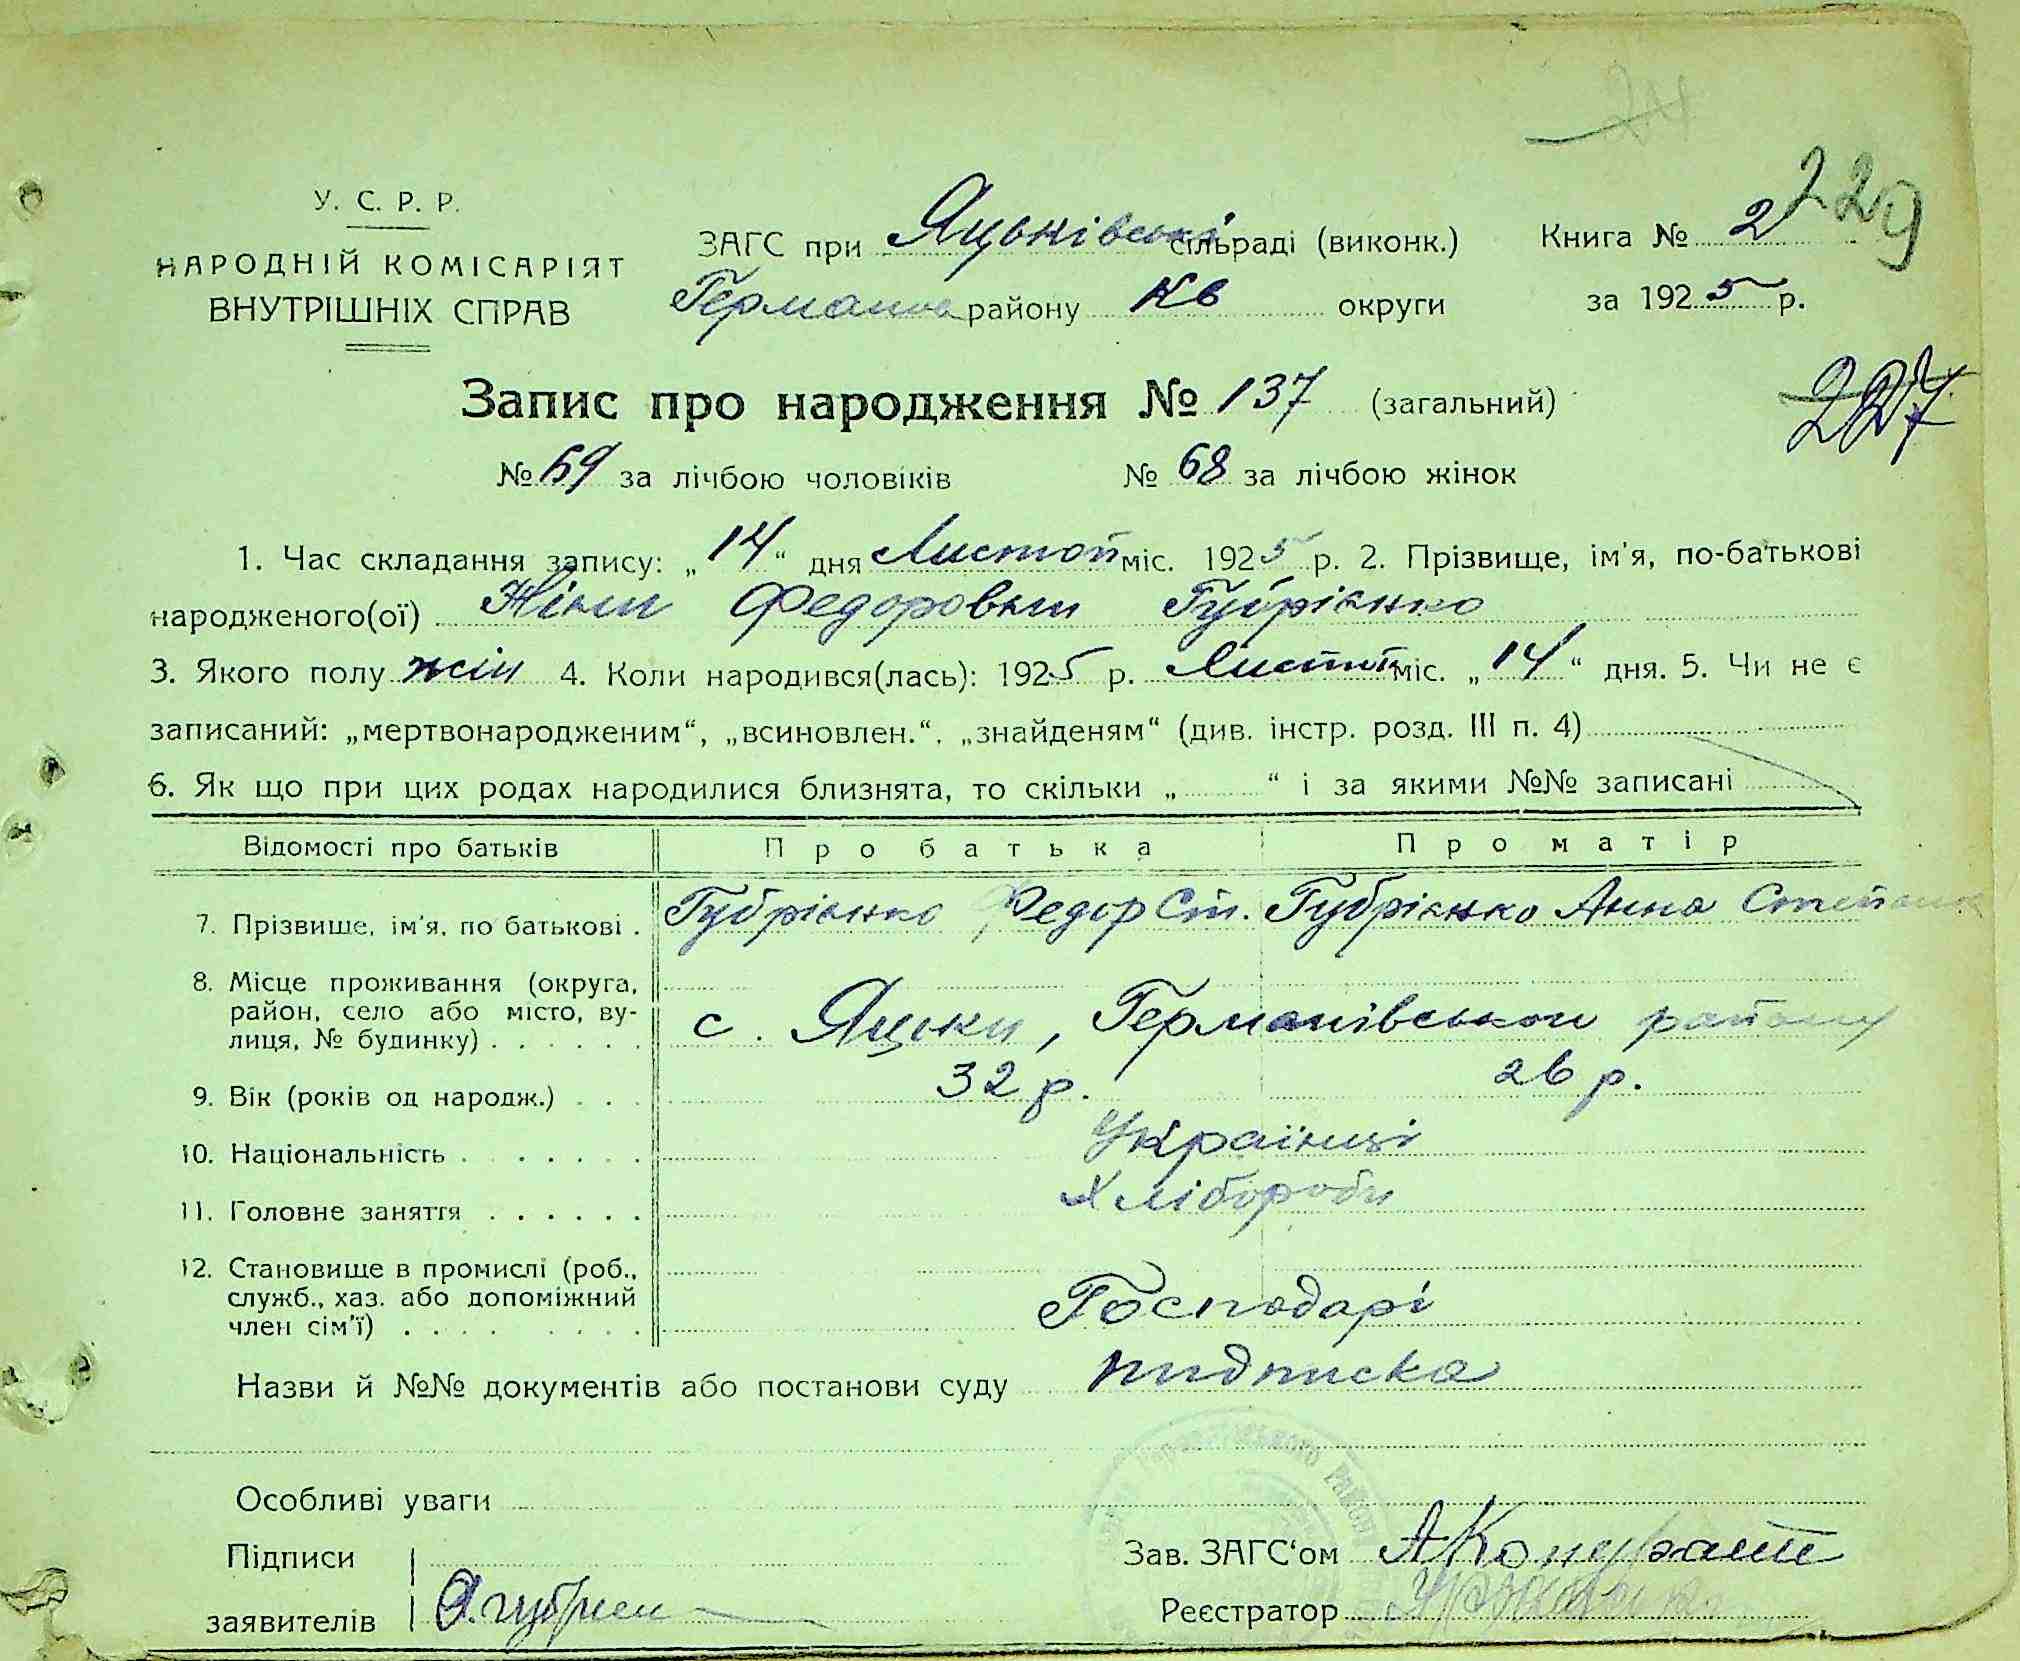 229
У. С. Р. Р.
НАРОДНІЙ КОМІСАРІЯТ
ВНУТРІШНІХ СПРАВ
ЗАГС при Яцьківській сільраді (виконк.) Книга № 2
Германів району Кв округи за 1925 р.
227
Запис про народження № 137 (загальний)
№ 69 за лічбою чоловіків № 68 за лічбою жінок
1. Час складання запису: „14“ дня Листоп міс. 1925 р. 2. Прізвище, ім'я, по-батькові
народженого(ої) Ніни Федоровни Губрієнко
3. Якого полу жін 4. Коли народився(лась): 1925 р. Листоп міс. „14“ дня. 5. Чи не є
записаний: „мертвонародженим“, „всиновлен.“, „знайденям“ (див. інстр. розд. III п. 4)
6. Як що при цих родах народилися близнята, то скільки „ “ і за якими №№ записані
Відомості про батьків Про батька Про матір
7. Прізвище, ім'я, по батькові . Губрієнко Федор Ст. Губрієнко Анна Степанов
8. Місце проживання (округа, район, село або місто, ву-
лиця, № будинку) . . . . . . с. Яцьки, Германівського району
9. Вік (років од народж.) . . . 32 р. 26 р.
10. Національність . . . . . . . Українці
11. Головне заняття . . . . . . Хлібороби
12. Становище в промислі (роб.,
служб., хаз. або допоміжний
член сім'ї) . . . . . . . . Господарі
Назви й №№ документів або постанови суду пидписка
Особливі уваги
Підписи Зав. ЗАГС‘ом
заявителів Реєстратор